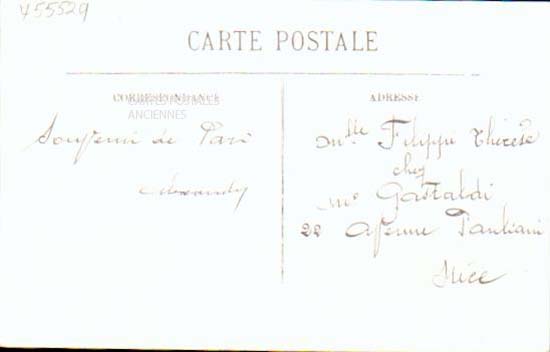 455529
CARTE POSTALE
CORRESPONDANCE
CARTES POSTALES
ANCIENNES
Souvenir de Pari
ADRESSE
Mlle Filippi Thérèse
chez
Me Gastaldi
22 Avenue Pauliani
Nice